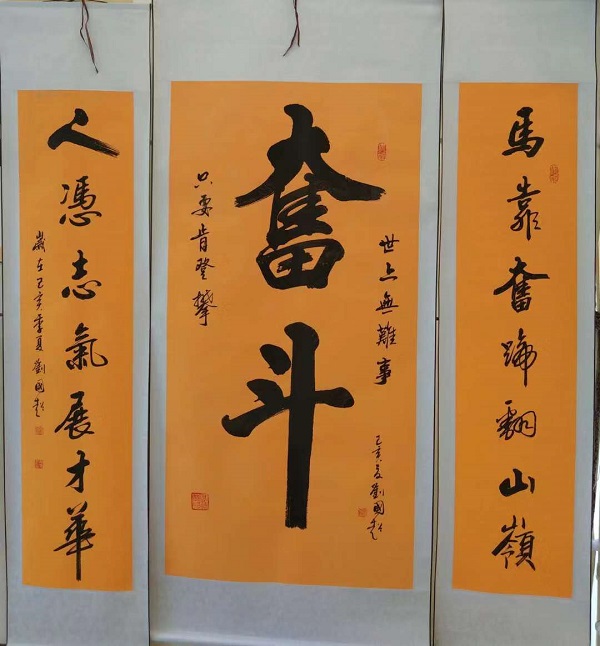 馬靠奮蹄翻山嶺
奮斗
世上無難事
只要肯登攀
己亥夏劉國
人憑志氣展才華
歲在己亥季夏劉國